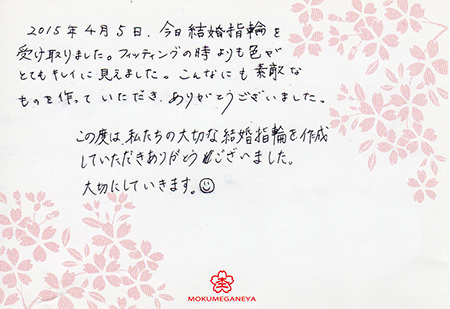 2015年4月5日、今日結婚指輪を
受け取りました。フィッティングの時よりも色が
とてもキレイに見えました。こんなにも素敵な
ものを作っていただき、ありがとうございました。
この度は、私たちの大切な結婚指輪を作成
していただきありがとうございました。
大切にしていきます。☺
MOKUMEGANEYA